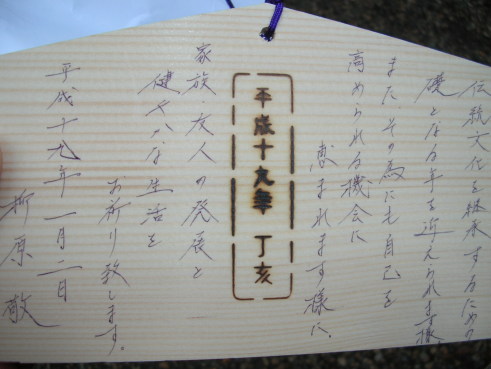 伝統文化を継承するための
礎となる年を迎えられます様
また、その為にも自己を
高められる機会に
恵まれます様に。
平成十九年 丁亥
家族・友人の発展と
健やかな生活を
お祈り致します。
平成十九年 一月二日
折原敬